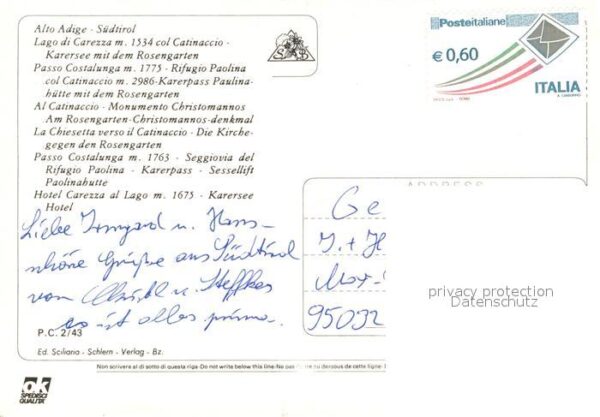 Alto Adige - Südtirol
Lago di Carezza m. 1534 col Catinaccio -
Karersee mit dem Rosengarten
Passo Costalunga m. 1775 - Rifugio Paolina
col Catinaccio m. 2986-Karerpass Paulina-
hütte mit dem Rosengarten
Al Catinaccio - Monumento Christomannos
Am Rosengarten-Christomannos-denkmal
La Chiesetta verso il Catinaccio - Die Kirche-
gegen den Rosengarten
Passo Costalunga m. 1763 - Seggiovia del
Rifugio Paolina - Karerpass - Sessellift
Paolinahutte
Hotel Carezza al Lago m. 1675 - Karersee
Hotel
Liebe Irmgard u. Hans
schöne Grüße aus Südtirol
von u. Steffkes
es ist alles prima.
P.C. 2/43
Ed. Sciliano - Schlern - Verlag - Bz.
ok
SPEDISCI
QUALITÀ
SB
Posteitaliane
€ 0,60
ITALIA
ADDRESS
Ge
I. + H
Max-
95032
privacy protection
Datenschutz
Non scrivere al di sotto di questa riga-Do not write below this line-Ne pas écrire au dessous de cette ligne-